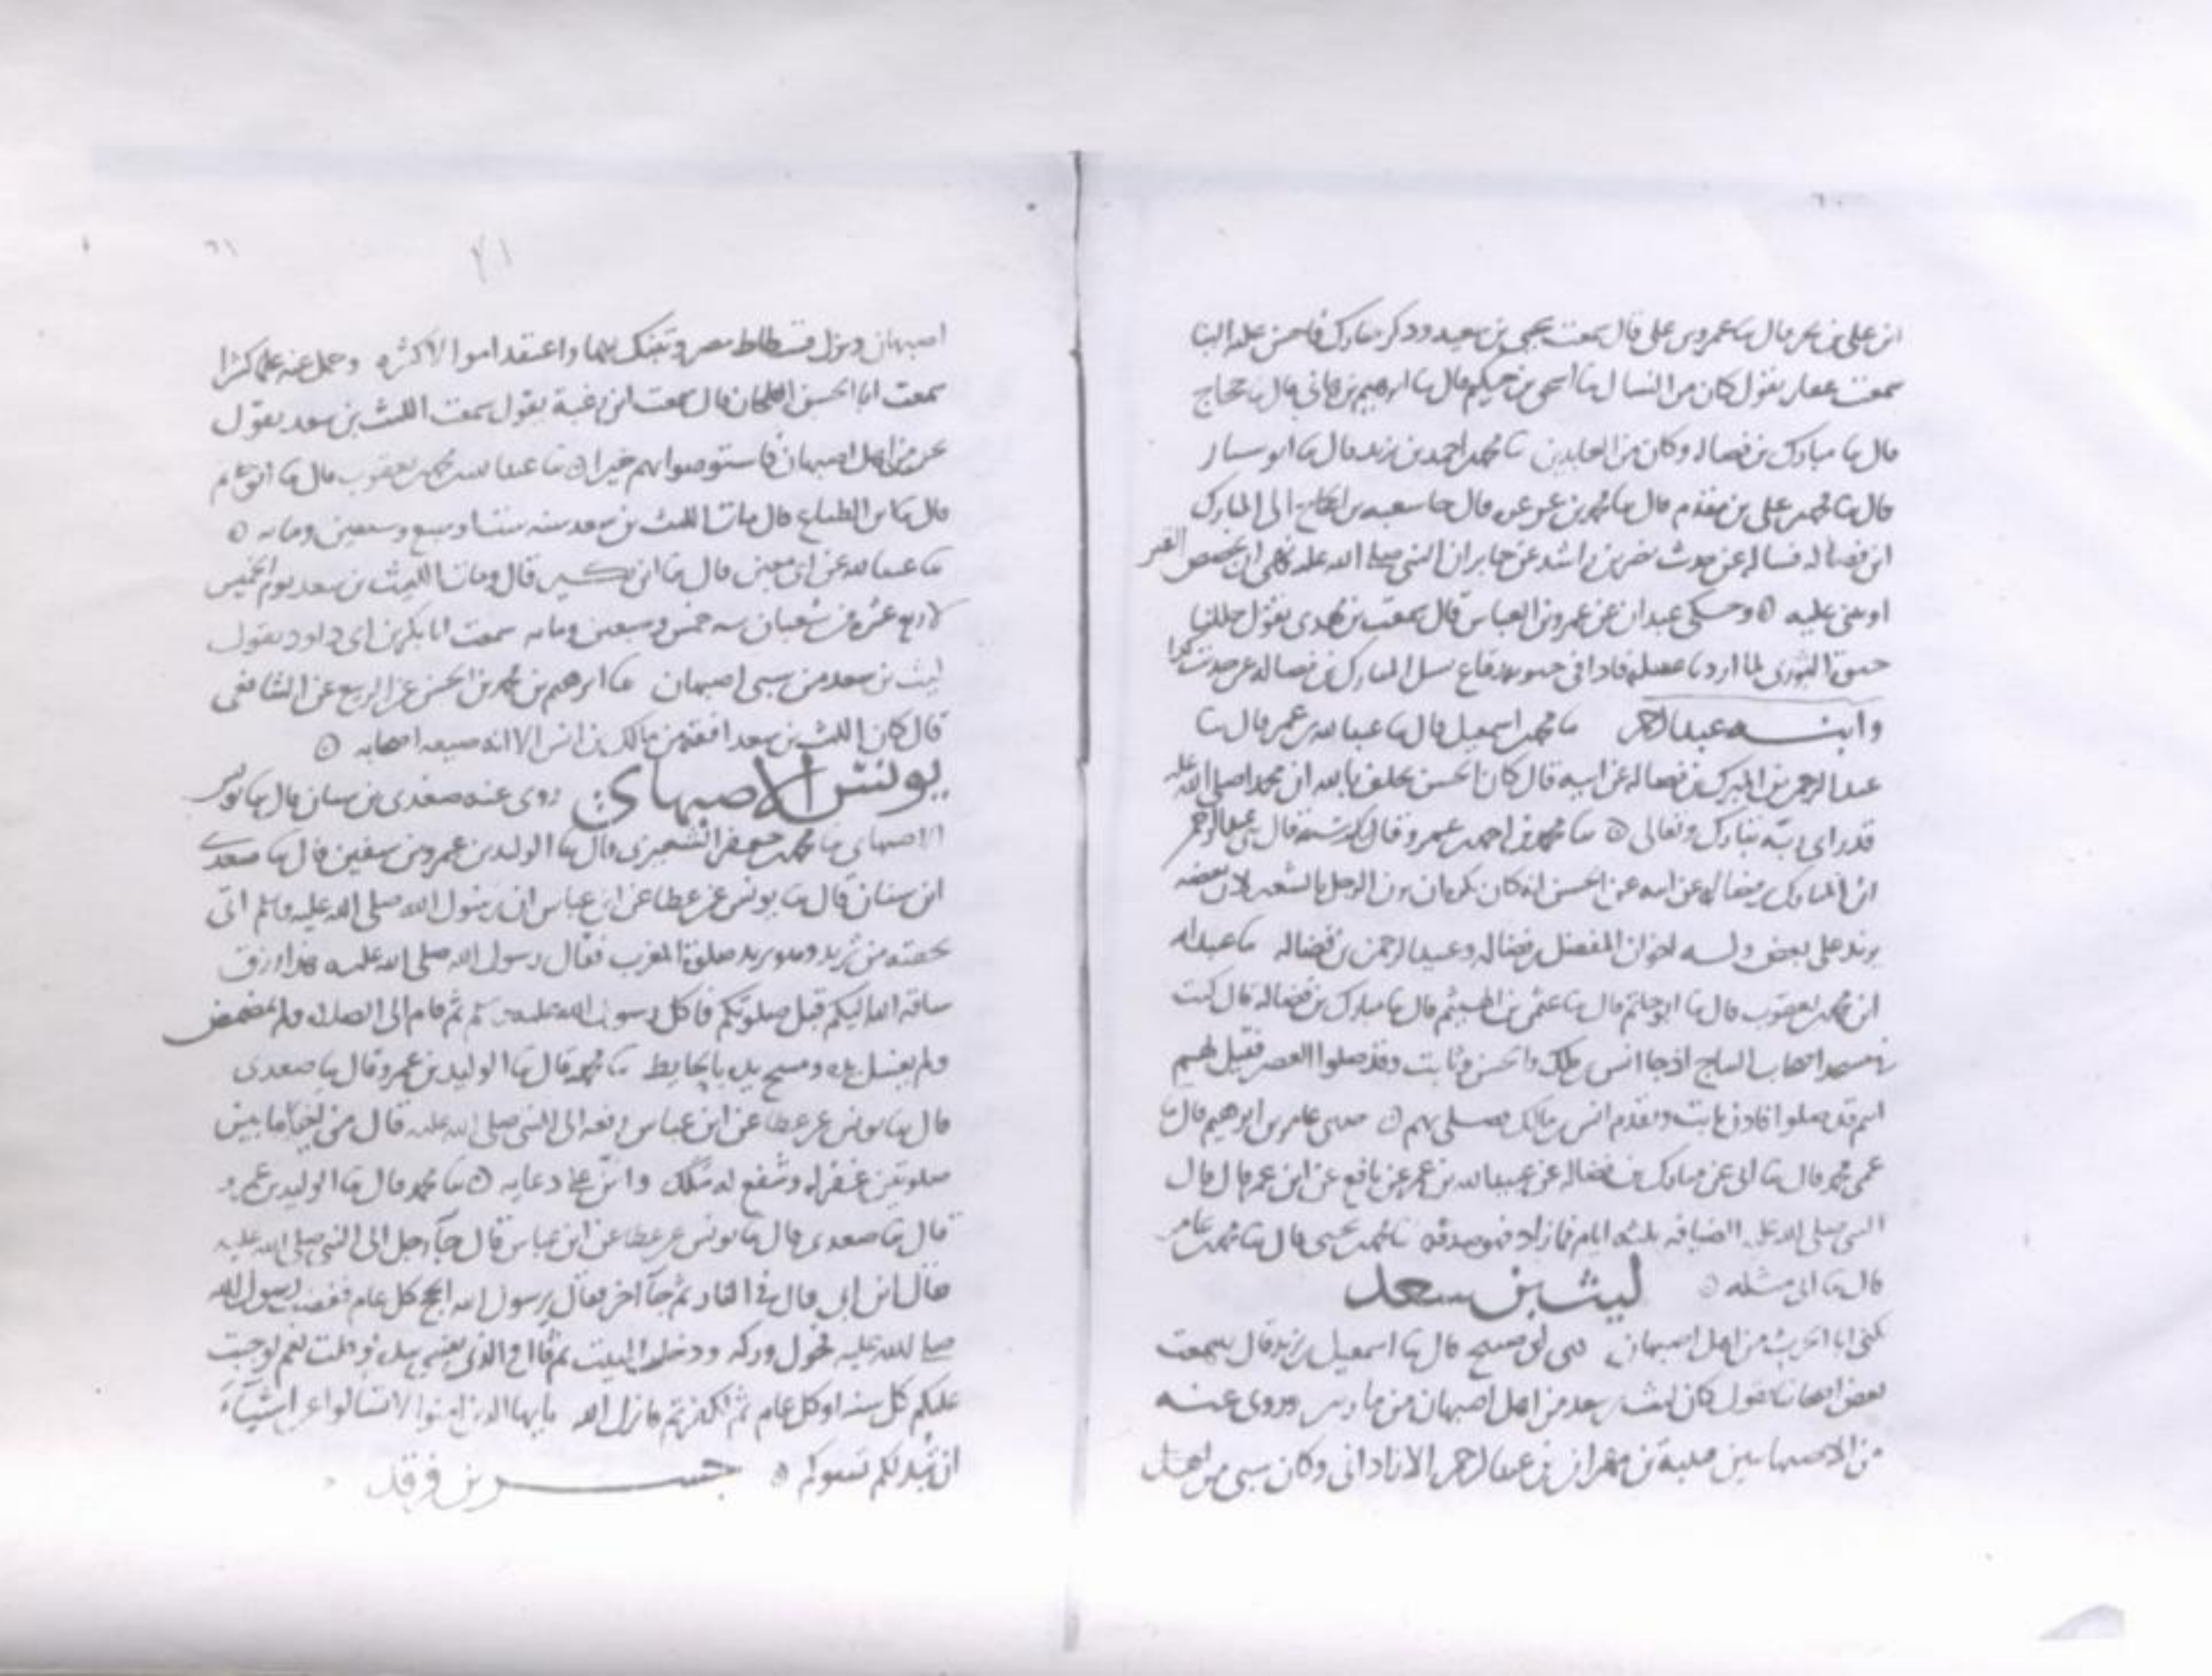 ابن علي بن بحر قال نا عمرو بن علي قال سمعت يحيى بن سعيد وذكر مبارك فاحسن عليه الثنا
سمعت عفان يقول كان من النساك نا اسحق بن حكيم قال نا ابرهيم بن هاني قال نا حجاج
قال نا مبارك بن فضاله وكان من العابدين نا محمد احمد بن يزيد قال نا ابو سيار
قال نا محمد بن علي بن مقدم قال نا محمد بن عرعره قال جا شعبه بن الحجاج الى المبارك
ابن فضاله فساله عن حديث نصر بن راشد عن جابر ان النبي صلى الله عليه نهى ان يجصص القبر
او يبنى عليه وحكى عبدان عن عمرو بن العباس قال سمعت بن مهدي يقول
الثوري لما اردنا المبارك بن فضاله عن حديث كذا
وابنه عبد الرحمن نا محمد بن اسمعيل قال نا عبد الله بن عمر قال نا
عبد الرحمن بن المبرك بن فضاله عن ابيه قال كان الحسن يحلف بالله ان محمدا صلى الله عليه
قد راى ربه تبارك وتعالى نا محمد بن احمد بن عمرو قال نا رسته قال نا عبد الرحمن
ابن المبارك بن فضاله عن ابيه عن الحسن انه كان يكره ان يزن الرجل بالشعير لان بعضه
يزيد على بعض وله اخوان المفضل بن فضاله وعبد الرحمن بن فضاله نا عبد الله
ابن محمد بن يعقوب قال نا ابو حاتم قال نا عثمن بن الهيثم قال نا مبارك بن فضاله قال كنت
في مسجد اصحاب الساج اذ جا انس بن ملك والحسن وثابت وقد صلوا العصر فقيل لهم
انهم قد صلوا فاذن ثابت وتقدم انس بن مالك فصلى بهم حدثني عامر بن ابرهيم قال نا
عمي محمد قال نا ابي عن مبارك بن فضاله عن عبيد الله بن عمر عن نافع عن ابن عمر قال قال
النبي صلى الله عليه الضيافه ثلثه ايام فما زاد فهو صدقه نا محمد بن يحيى قال نا محمد بن عامر
قال نا ابي مثله ليث بن سعد
يكنى ابا الحرث من اهل اصبهان حكى لي صبيح قال نا اسمعيل بن يزيد قال سمعت
بعض اصحابنا يقول كان ليث بن سعد من اهل اصبهان من ماربين وروى عنه
من الاصبهانيين هدبة بن مهران بن عبد الرحمن الازاداني وكان سبي من اهل
٤١
اصبهان ونزل فسطاط مصر وتبنك بها واعتقد اموالا كثيره وحمل عنه علما كثيرا
سمعت ابا الحسن الطحان قال سمعت ابن زغبة يقول سمعت الليث بن سعد يقول
نحن من اهل اصبهان فاستوصوا بهم خيرا نا عبد الله بن محمد بن يعقوب قال نا ابو حاتم
قال نا بن الطباع قال مات الليث بن سعد سنه ستا وسبع وسبعين ومايه
نا عبد الله عن ابن معين قال نا ابن بكير قال ومات الليث بن سعد يوم الخميس
لاربع عشره من شعبان سنه خمس وسبعين ومايه سمعت ابا بكر بن ابي داود يقول
ليث بن سعد من سبي اصبهان نا ابرهيم بن محمد بن الحسن عن الربيع عن الشافعي
قال كان الليث بن سعد افقه من مالك بن انس الا انه ضيعه اصحابه
يونس الاصبهاني روى عنه صغدي بن سنان قال نا يونس
الاصبهاني نا محمد بن جعفر الشعيري قال نا الوليد بن عمرو بن سفين قال نا صغدي
ابن سنان قال نا يونس عن عطا عن ابن عباس ان رسول الله صلى الله عليه وسلم اتى
بجفنه من ثريد وهو يريد صلوة المغرب فقال رسول الله صلى الله عليه هذا رزق
ساقه الله اليكم قبل صلوتكم فاكل رسول الله صلى الله عليه وسلم ثم قام الى الصلاه ولم يمضمض
ولم يغسل يده ومسح يده بالحايط نا محمد قال نا الوليد بن عمرو قال نا صغدي
قال نا يونس عن عطا عن ابن عباس رفعه الى النبي صلى الله عليه قال من احيا ما بين
صلوتين غفر له وشفع له ملك وامن على دعايه نا محمد قال نا الوليد بن عمرو
قال نا صغدي قال نا يونس عن عطا عن ابن عباس قال جآ رجل الى النبي صلى الله عليه
فقال اين ابي قال في النار ثم جآ اخر فقال يرسول الله الحج كل عام فغضب رسول الله
صلى الله عليه فحول وركه ودخل البيت ثم قال والذي نفسي بيده لو قلت نعم لوجبت
عليكم كل سنه او كل عام ثم لكفرتم فانزل الله يايها الذين امنوا لا تسالوا عن اشيآء
ان تبد لكم تسوكم جسر بن فرقد